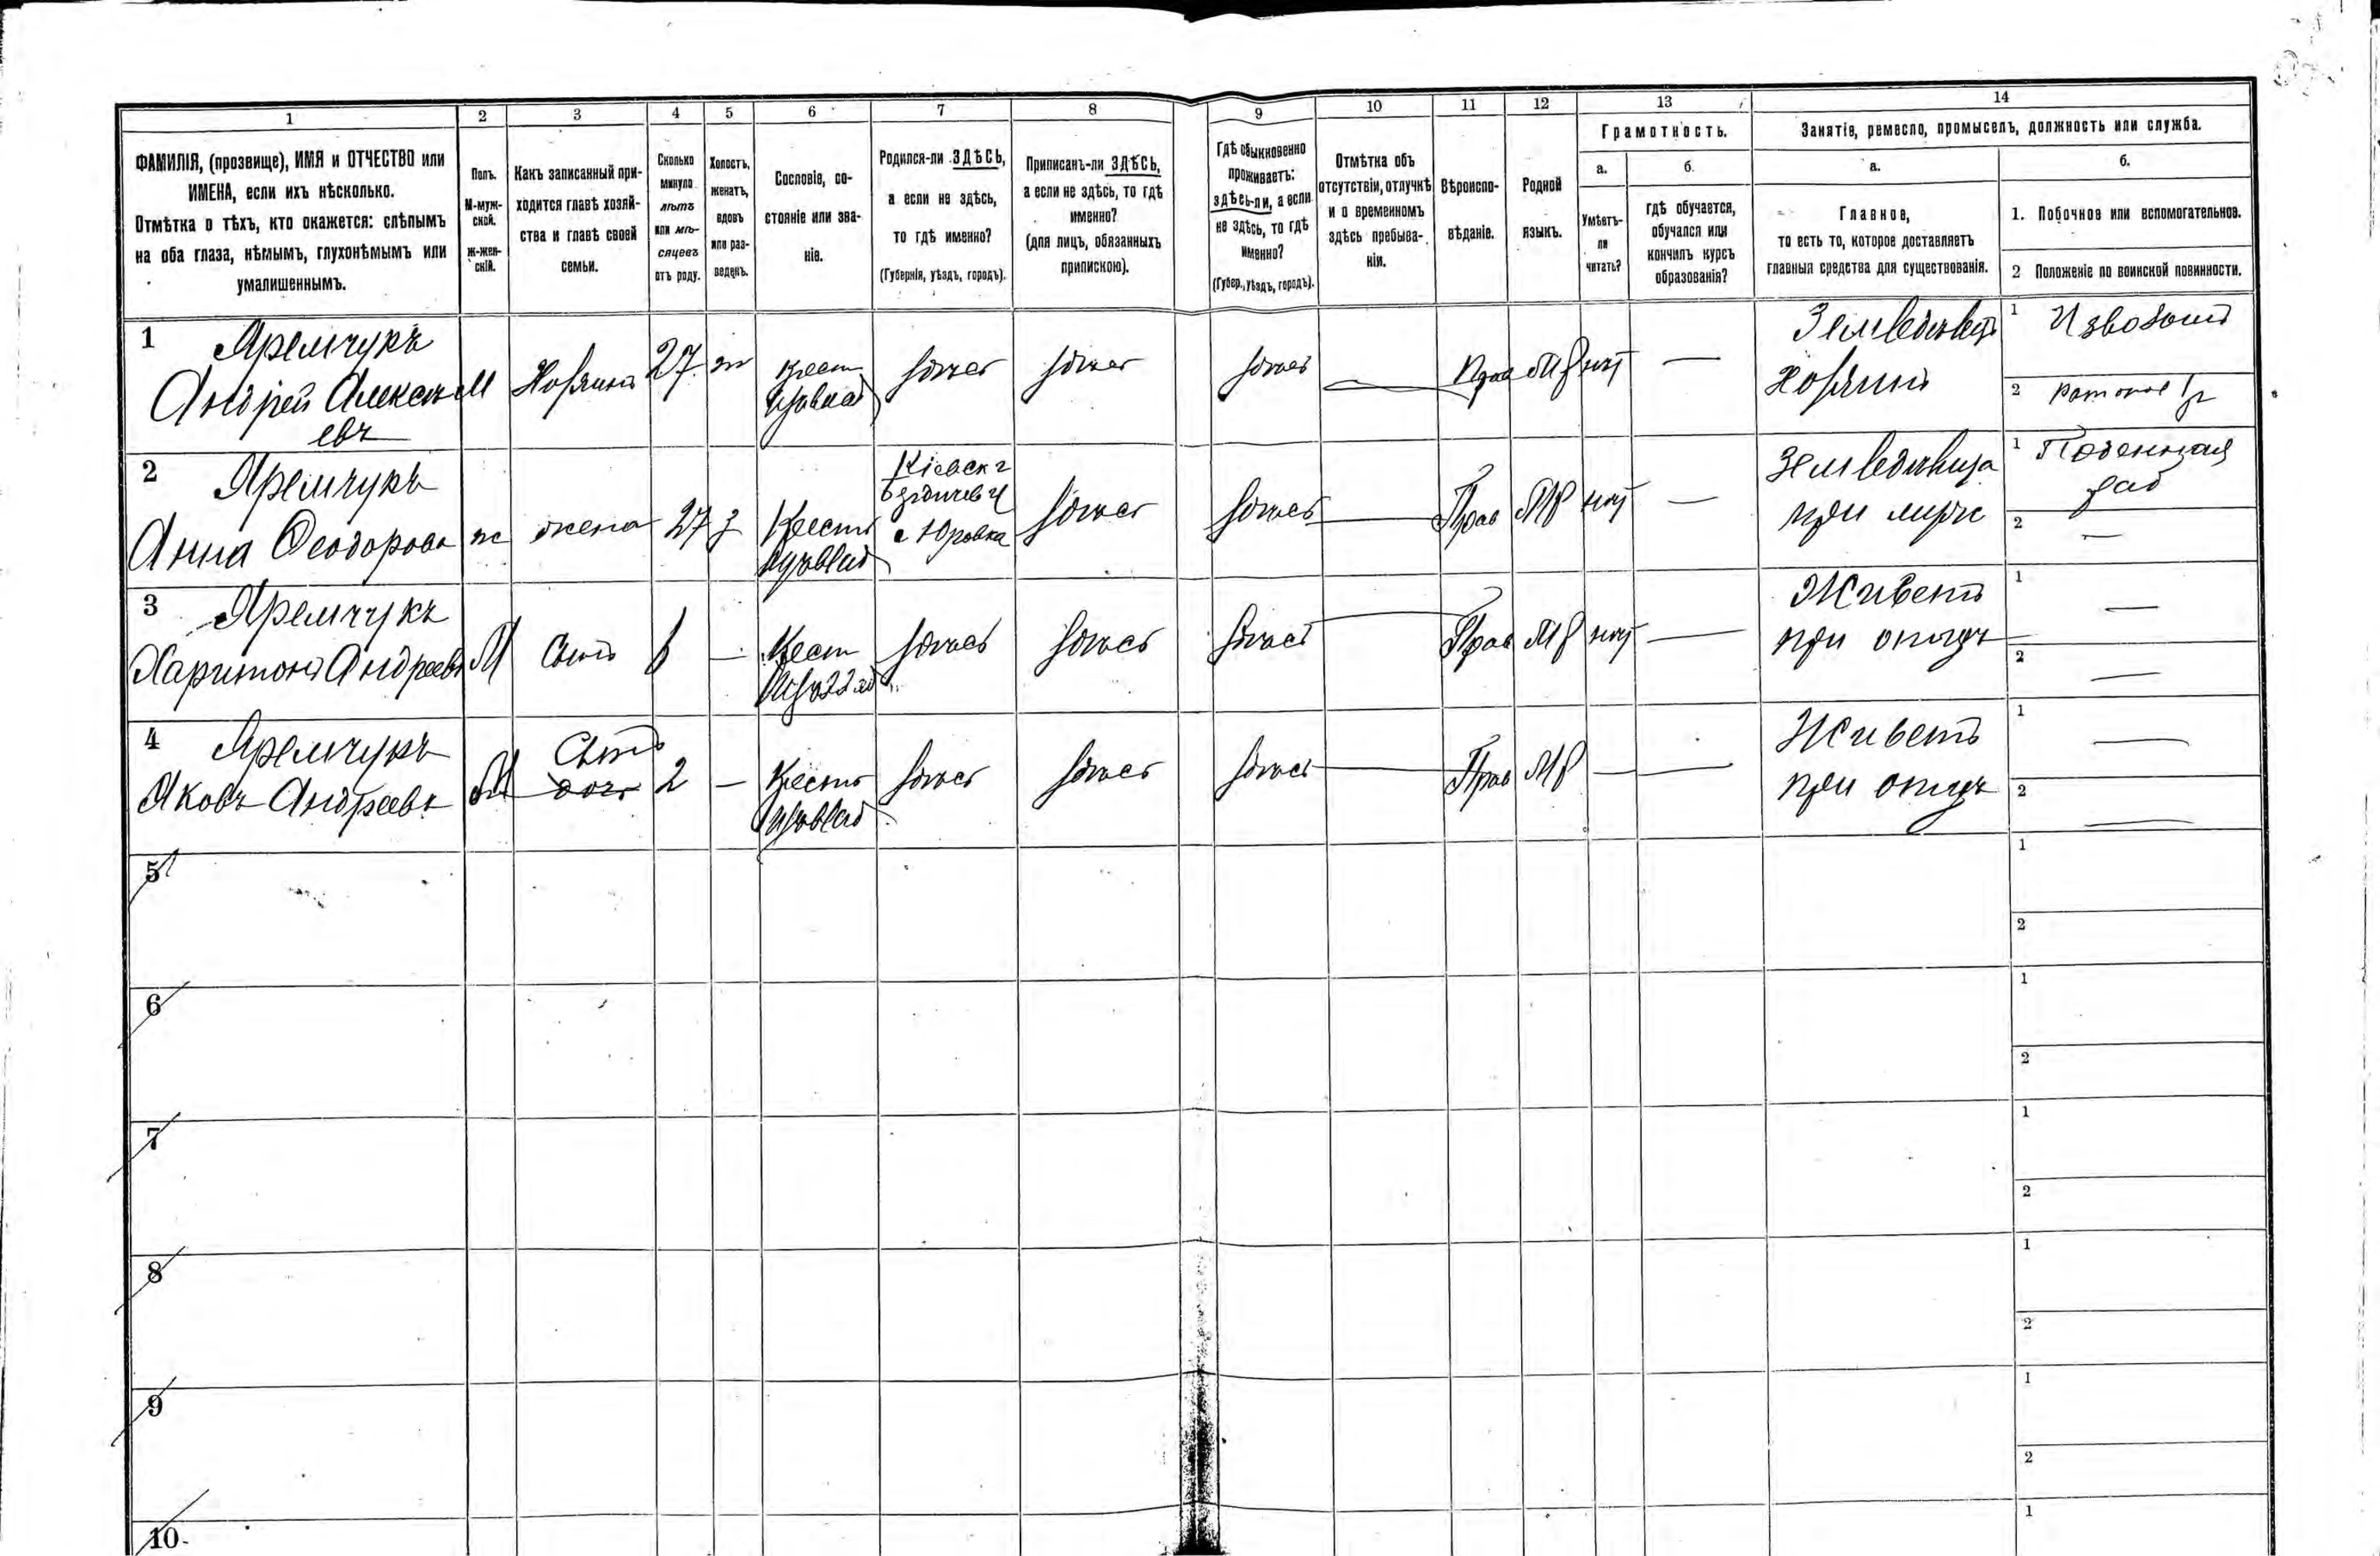 1 2 3 4 5 6 7 8 9 10 11 12 13 14
ФАМИЛІЯ, (прозвище), ИМЯ и ОТЧЕСТВО или
ИМЕНА, если ихъ нѣсколько.
Отмѣтка о тѣхъ, кто окажется: слѣпымъ
на оба глаза, нѣмымъ, глухонѣмымъ или
умалишеннымъ.
Полъ.
М-муж-
ской.
Ж-жен-
скій.
Какъ записанный при-
ходится главѣ хозяй-
ства и главѣ своей
семьи.
Сколько
минуло
лѣтъ
или мѣ-
сяцевъ
отъ роду.
Холостъ,
женатъ,
вдовъ
или раз-
веденъ.
Сословіе, со-
стояніе или зва-
ніе.
Родился-ли ЗДѢСЬ,
а если не здѣсь,
то гдѣ именно?
(Губернія, уѣздъ, городъ).
Приписанъ-ли ЗДѢСЬ,
а если не здѣсь, то гдѣ
именно?
(для лицъ, обязанныхъ
припискою).
Гдѣ обыкновенно
проживаетъ:
здѣсь-ли, а если
не здѣсь, то гдѣ
именно?
(Губер., уѣздъ, городъ).
Отмѣтка объ
отсутствіи, отлучкѣ
и о временномъ
здѣсь пребыва-
ніи.
Вѣроиспо-
вѣданіе.
Родной
языкъ.
Грамотность.
а.
Умѣетъ-
ли
читать?
б.
гдѣ обучается,
обучался или
кончилъ курсъ
образованія?
Занятія, ремесло, промыселъ, должность или служба.
а.
Главное,
то есть то, которое доставляетъ
главныя средства для существованія.
б.
1. Побочное или вспомогательное.
2 Положеніе по воинской повинности.
1 Яремчукъ
Андрей Алексе
евъ
М
Хозяинъ
27
ж
Крест
здѣсь
здѣсь
здѣсь
—
Прав
МР
нѣт
—
Хозяинъ
1 Извозом
2
2 Яремчукъ
Анна Ѳеодорова
ж
жена
27
з
Крестъ
Кіевск г
Бердичев у
с Юровка
здѣсь
здѣсь
—
Прав
МР
нѣт
—
при мужѣ
1 Поденная
раб
2 —
3 Яремчукъ
Харитонъ Андреевъ
М
Сынъ
—
Крест
здѣсь
здѣсь
здѣсь
—
Прав
МР
нѣт
—
Живетъ
при отцѣ
1 —
2 —
4 Яремчукъ
Яковъ Андреевъ
М
Сынъ
дочь
2
—
Крестъ
здѣсь
здѣсь
здѣсь
—
Прав
МР
—
—
Живетъ
при отцѣ
1 —
2 —
5
1
2
6
1
2
7
1
2
8
1
2
9
1
2
10
1